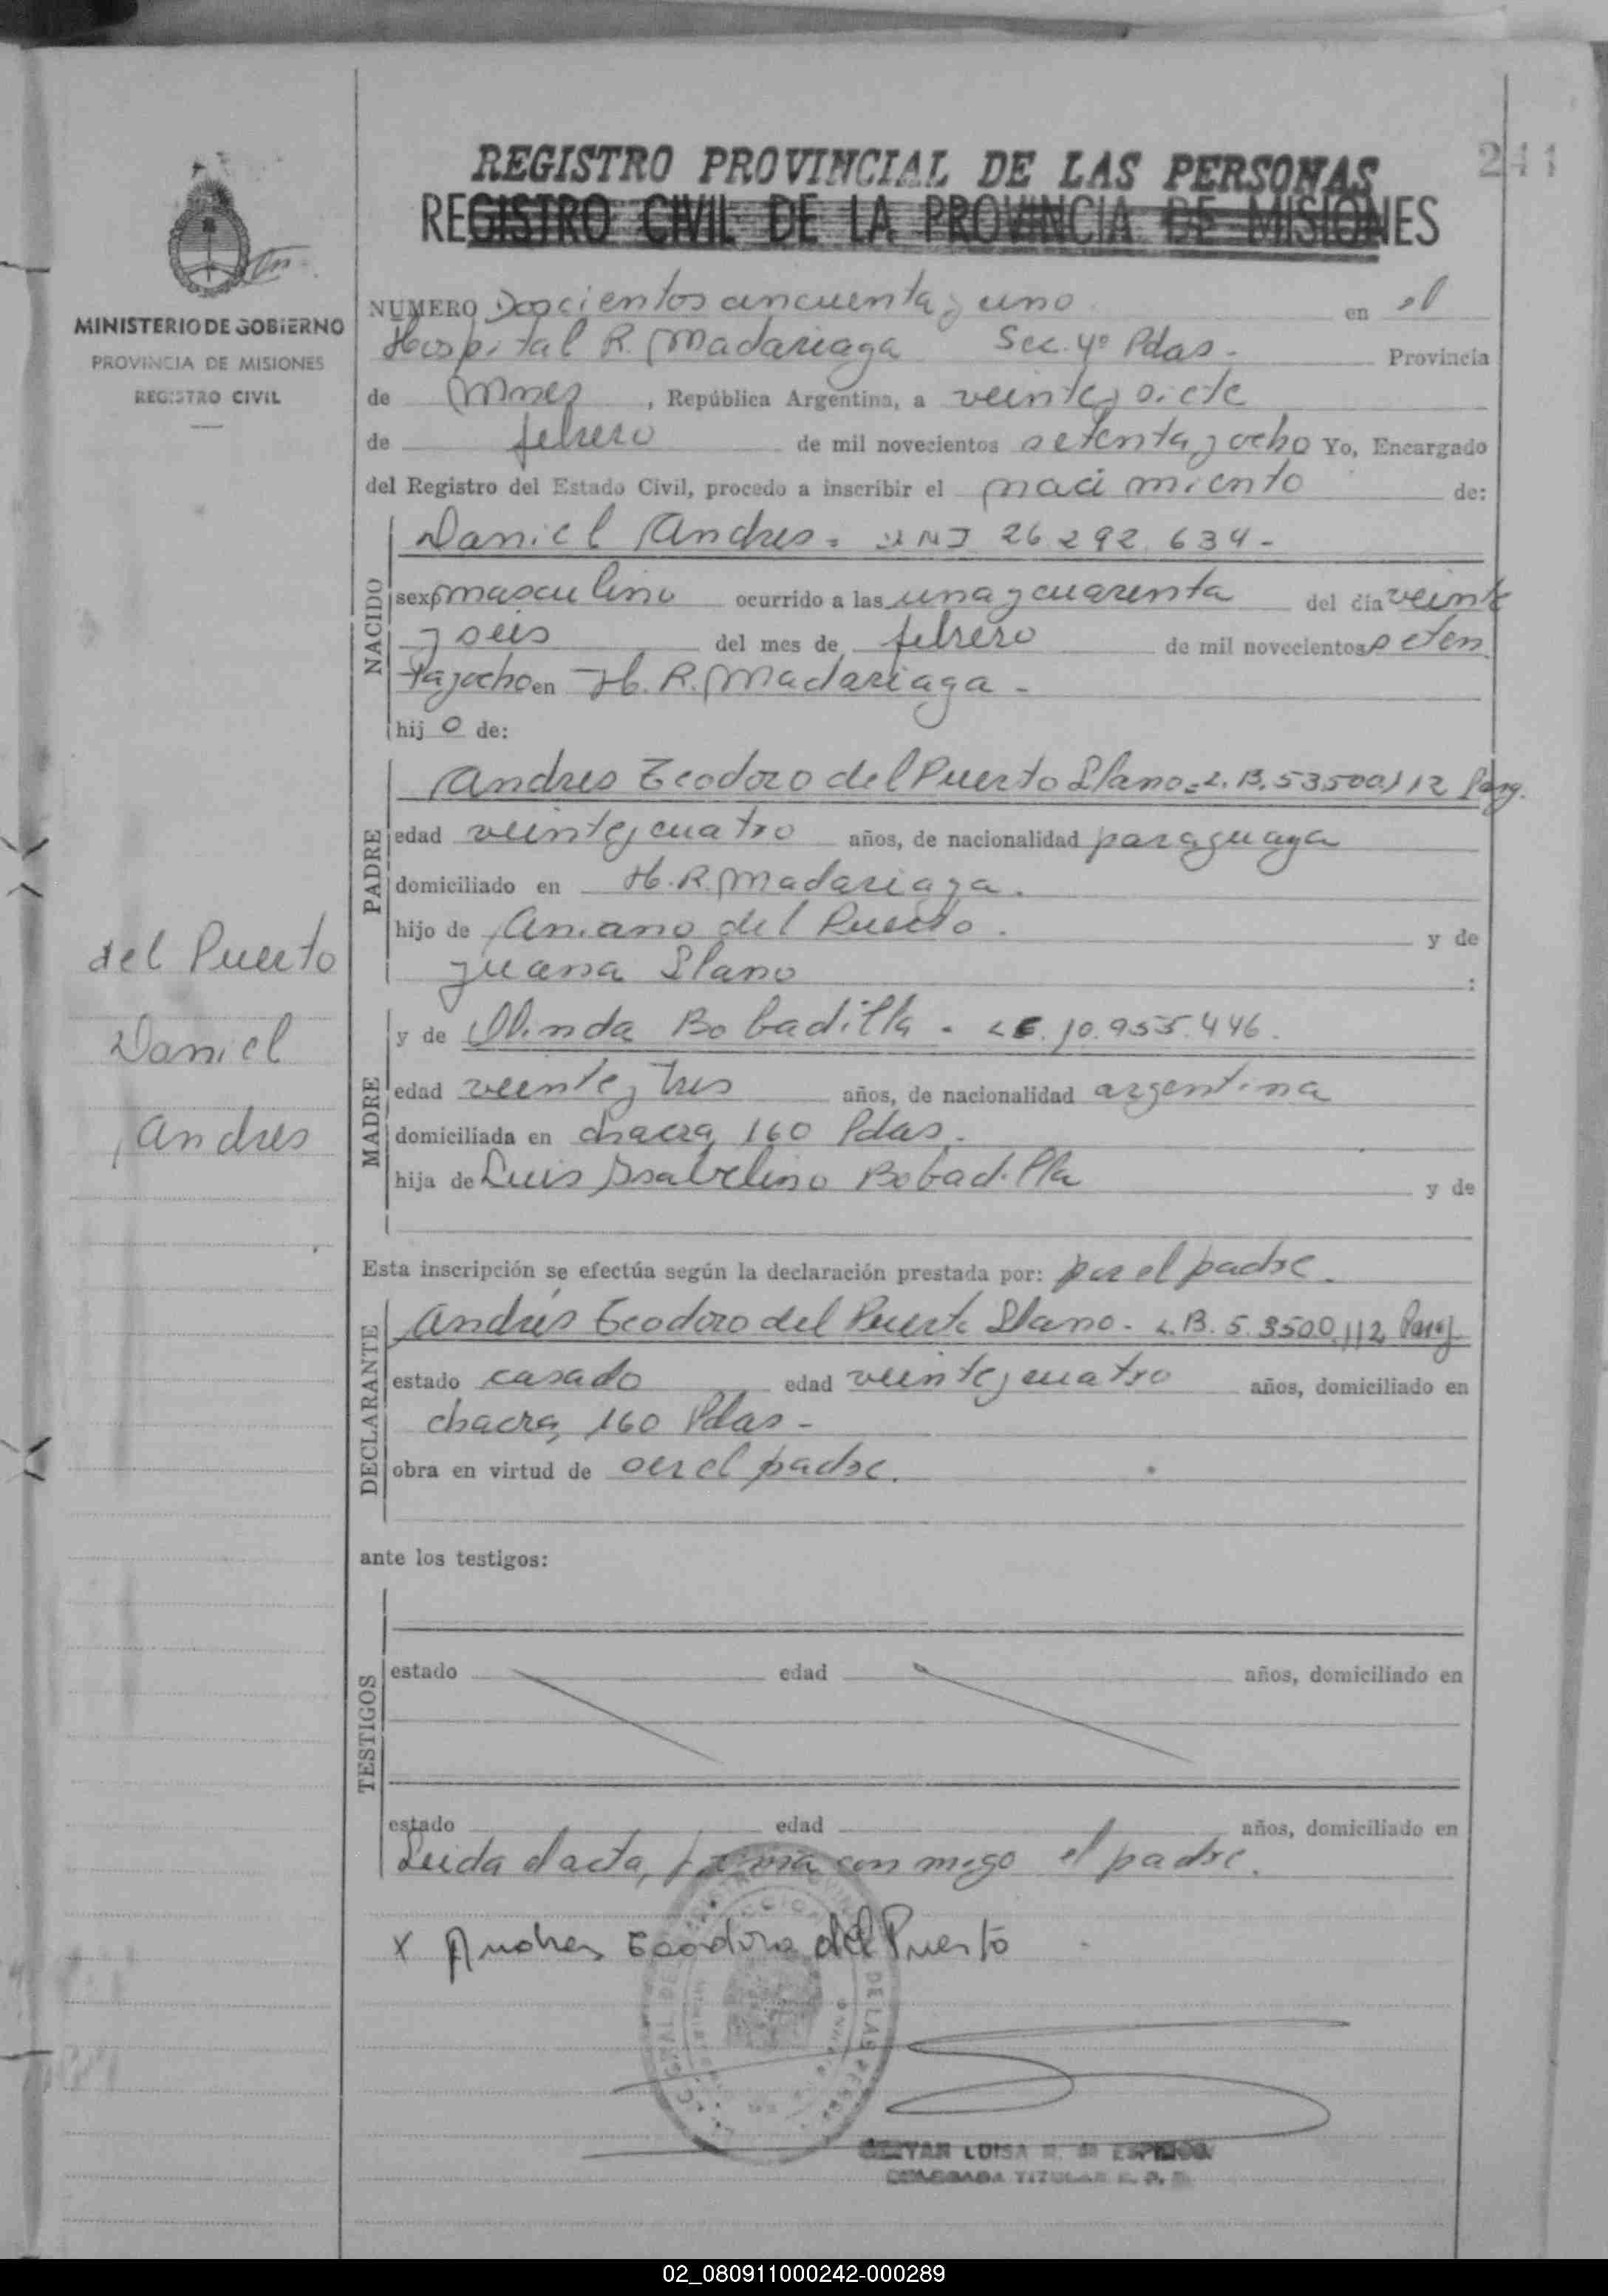 241
REGISTRO PROVINCIAL DE LAS PERSONAS
REGISTRO CIVIL DE LA PROVINCIA DE MISIONES
MINISTERIO DE GOBIERNO
PROVINCIA DE MISIONES
REGISTRO CIVIL
NUMERO Doscientos cincuenta y uno en el
Hospital R. Madariaga Sec. 4º Pdas. - Provincia
de Mnes, República Argentina, a veinte y siete
de febrero de mil novecientos setenta y ocho Yo, Encargado
del Registro del Estado Civil, procedo a inscribir el nacimiento de:
NACIDO
Daniel Andres. DNI 26.292.634-
sexo masculino ocurrido a las una y cuarenta del día veinte
y seis del mes de febrero de mil novecientos seten
ta y ocho en H. R. Madariaga -
hijo de:
PADRE
Andres Teodoro del Puerto Llano = L.B. 53500112 Parg.
edad veinte y cuatro años, de nacionalidad paraguaya
domiciliado en H. R. Madariaga.
hijo de Aniano del Puerto. y de
Juana Llano :
del Puerto
Daniel
Andres
MADRE
y de Olinda Bobadilla. LE. 10.955.446.
edad veinte y tres años, de nacionalidad argentina
domiciliada en chacra 160 Pdas.
hija de Luis Isabelino Bobadilla y de
Esta inscripción se efectúa según la declaración prestada por: por el padre.
DECLARANTE
Andrés Teodoro del Puerto Llano. L.B. 5.3500.112 Parg
estado casado edad veinte y cuatro años, domiciliado en
chacra 160 Pdas -
obra en virtud de ser el padre.
ante los testigos:
TESTIGOS
estado edad años, domiciliado en
estado edad años, domiciliado en
Leida el acta, firma con migo el padre.
x Andres Teodoro del Puerto
LUISA
DELEGADA TITULAR
02_080911000242-000289